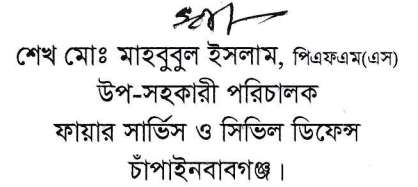 শেখ মোঃ মাহবুবুল ইসলাম, পিএফএম(এস)
উপ-সহকারী পরিচালক
ফায়ার সার্ভিস ও সিভিল ডিফেন্স
চাঁপাইনবাবগঞ্জ।